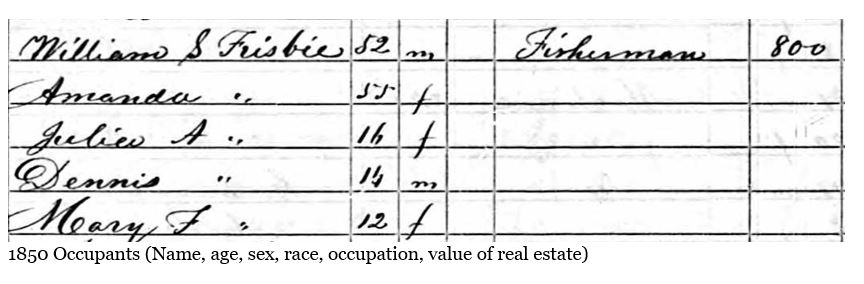 William S Frisbie 52 m Fisherman 800
Amanda " 55 f
Julia A " 16 f
Dennis " 14 m
Mary F " 12 f
1850 Occupants (Name, age, sex, race, occupation, value of real estate)